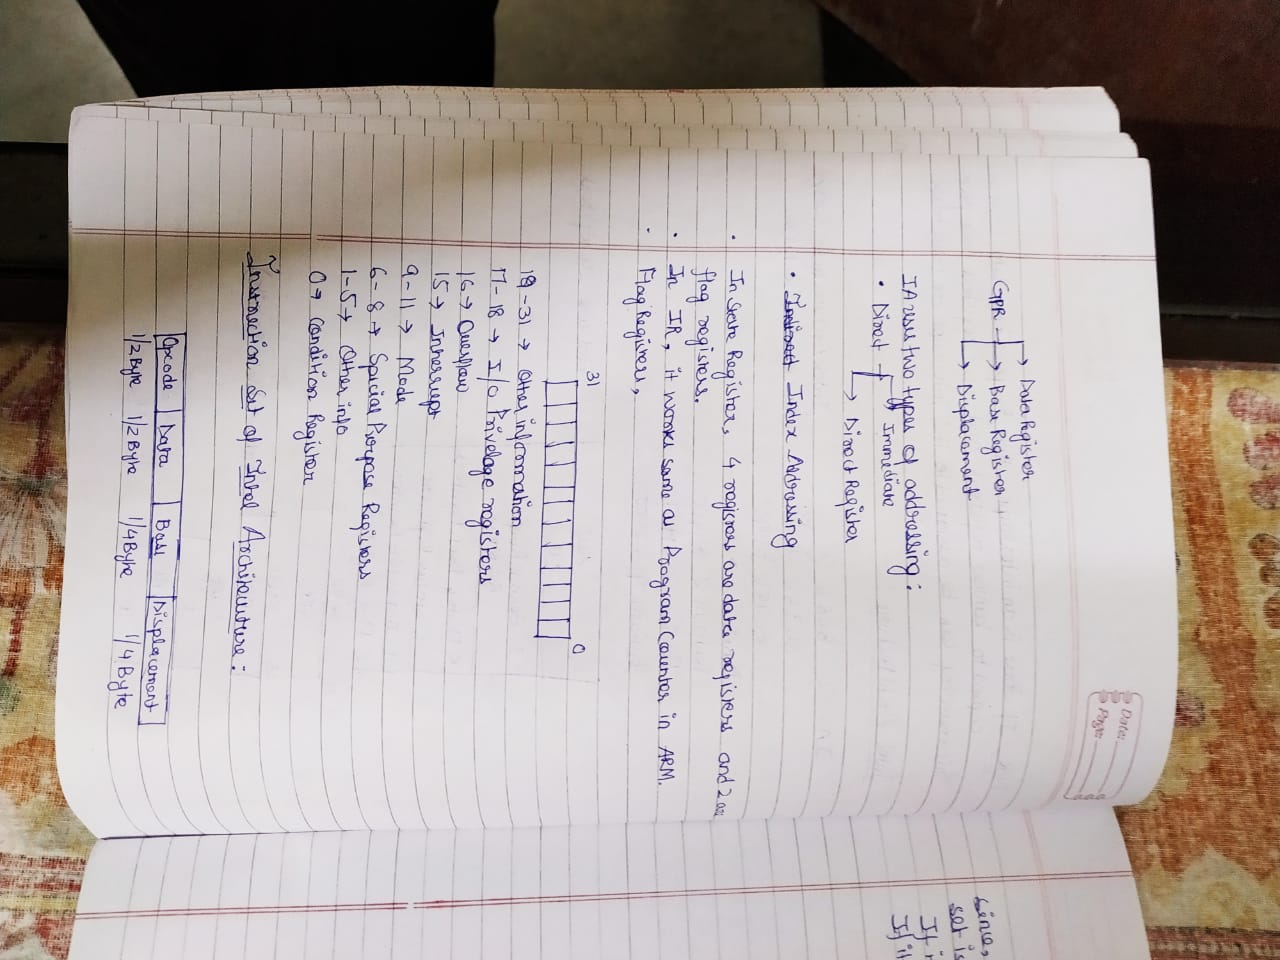 Date:
Page:
GPR → Data Register
→ Base Register
→ Displacement
IA uses two types of addressing:
• Direct → Immediate
→ Direct Register
• Index Addressing
• In State Register, 4 registers are data registers and 2 are
flag registers.
• In IR, it works same as Program Counter in ARM.
• Flag Registers,
31 0
19-31 → Other information
17-18 → I/O Privelage registers
16 → Overflow
15 → Interrupt
9-11 → Mode
6-8 → Special Purpose Registers
1-5 → Other info
0 → Condition Register
Instruction Set of Intel Architecuture:
Opcode Data Base Displacement
1/2 Byte 1/2 Byte 1/4 Byte 1/4 Byte
since,
set is
If
If it